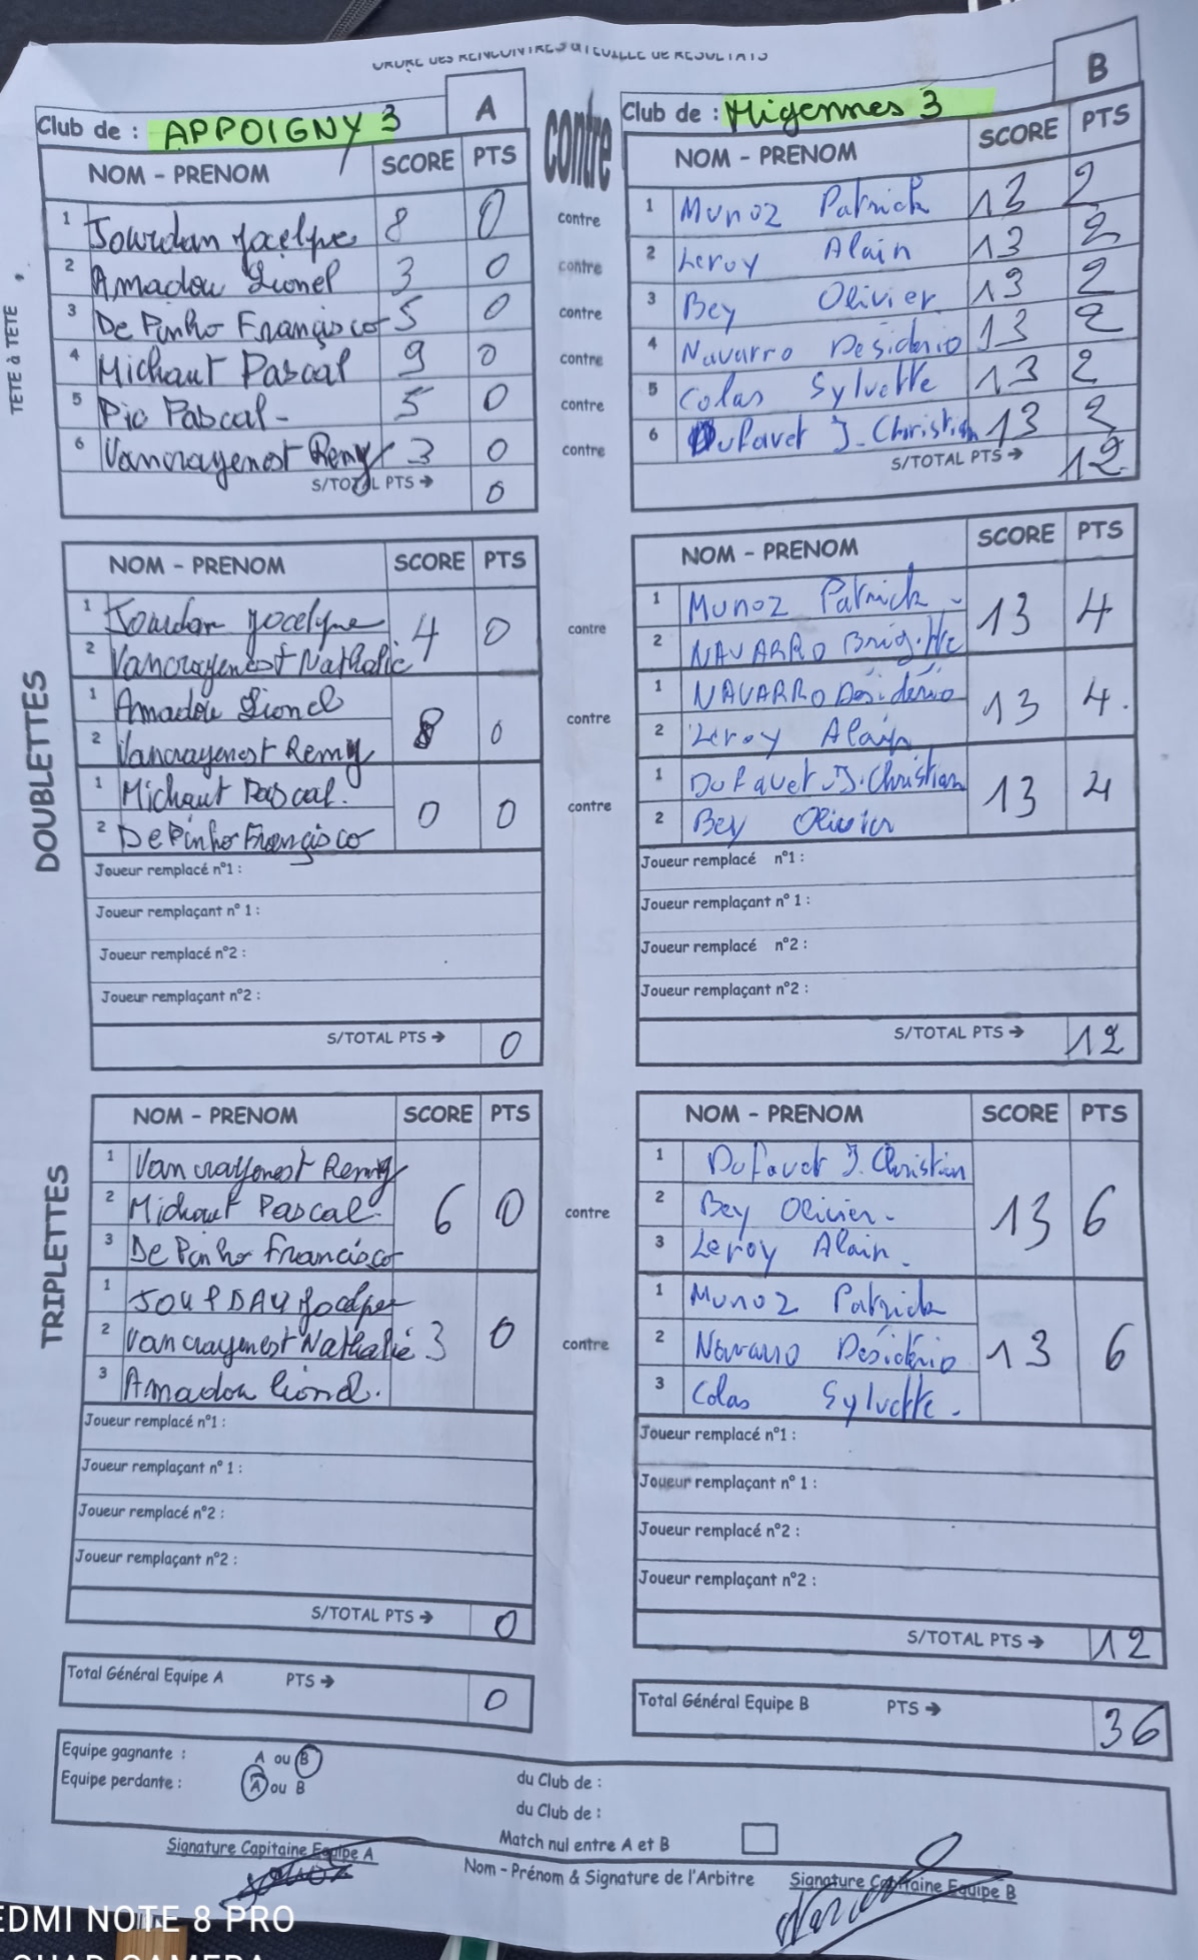 ORDRE DES RENCONTRES & FEUILLE DE RESULTATS
A
B
Club de : APPOIGNY 3
contre
Club de : Migennes 3
NOM - PRENOM SCORE PTS
NOM - PRENOM SCORE PTS
TETE à TETE
1 Jourdan Jocelyne 8 0 contre 1 Munoz Patrick 13 2
2 Amadou Lionel 3 0 contre 2 Leroy Alain 13 2
3 De Pinho Francisco 5 0 contre 3 Bey Olivier 13 2
4 Michaut Pascal 9 0 contre 4 Navarro Desiderio 13 2
5 Pio Pascal - 5 0 contre 5 Colas Sylvette 13 2
6 Vancrayenest Remy 3 0 contre 6 Dufavet J. Christian 13 2
S/TOTAL PTS → 0
S/TOTAL PTS → 12
DOUBLETTES
NOM - PRENOM SCORE PTS
NOM - PRENOM SCORE PTS
1 Jourdan Jocelyne 4 0 contre 1 Munoz Patrick - 13 4
2 Vancrayenest Nathalie 2 NAVARRO Brigitte
1 Amadou Lionel 8 0 contre 1 NAVARRO Désidério 13 4.
2 Vancrayenest Remy 2 Leroy Alain
1 Michaut Pascal. 0 0 contre 1 Dufavet J.Christian 13 4
2 De Pinho Francisco 2 Bey Olivier
Joueur remplacé n°1 :
Joueur remplacé n°1 :
Joueur remplaçant n° 1 :
Joueur remplaçant n° 1 :
Joueur remplacé n°2 :
Joueur remplacé n°2 :
Joueur remplaçant n°2 :
Joueur remplaçant n°2 :
S/TOTAL PTS → 0
S/TOTAL PTS → 12
TRIPLETTES
NOM - PRENOM SCORE PTS
NOM - PRENOM SCORE PTS
1 Vancrayenest Remy 1 Dufavet J. Christian
2 Michaut Pascal 6 0 contre 2 Bey Olivier - 13 6
3 De Pinho Francisco 3 Leroy Alain.
1 JOURDAN Jocelyne 1 Munoz Patrick
2 Vancrayenest Nathalie 3 0 contre 2 Navarro Désidério 13 6
3 Amadou Lionel. 3 Colas Sylvette -
Joueur remplacé n°1 :
Joueur remplacé n°1 :
Joueur remplaçant n° 1 :
Joueur remplaçant n° 1 :
Joueur remplacé n°2 :
Joueur remplacé n°2 :
Joueur remplaçant n°2 :
Joueur remplaçant n°2 :
S/TOTAL PTS → 0
S/TOTAL PTS → 12
Total Général Equipe A PTS → 0
Total Général Equipe B PTS → 36
Equipe gagnante : A ou B du Club de :
Equipe perdante : A ou B du Club de :
Match nul entre A et B
Signature Capitaine Equipe A
Nom - Prénom & Signature de l'Arbitre
Signature Capitaine Equipe B
EDMI NOTE 8 PRO
QUAD CAMERA